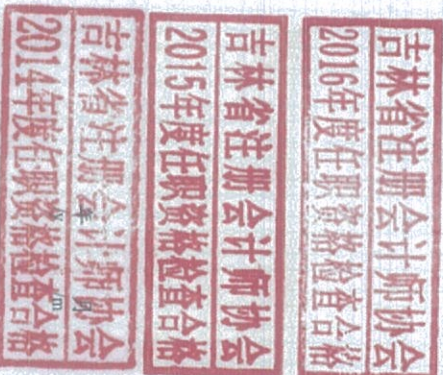 吉林省注册会计师协会
2014年度任职资格检查合格
吉林省注册会计师协会
2015年度任职资格检查合格
吉林省注册会计师协会
2016年度任职资格检查合格